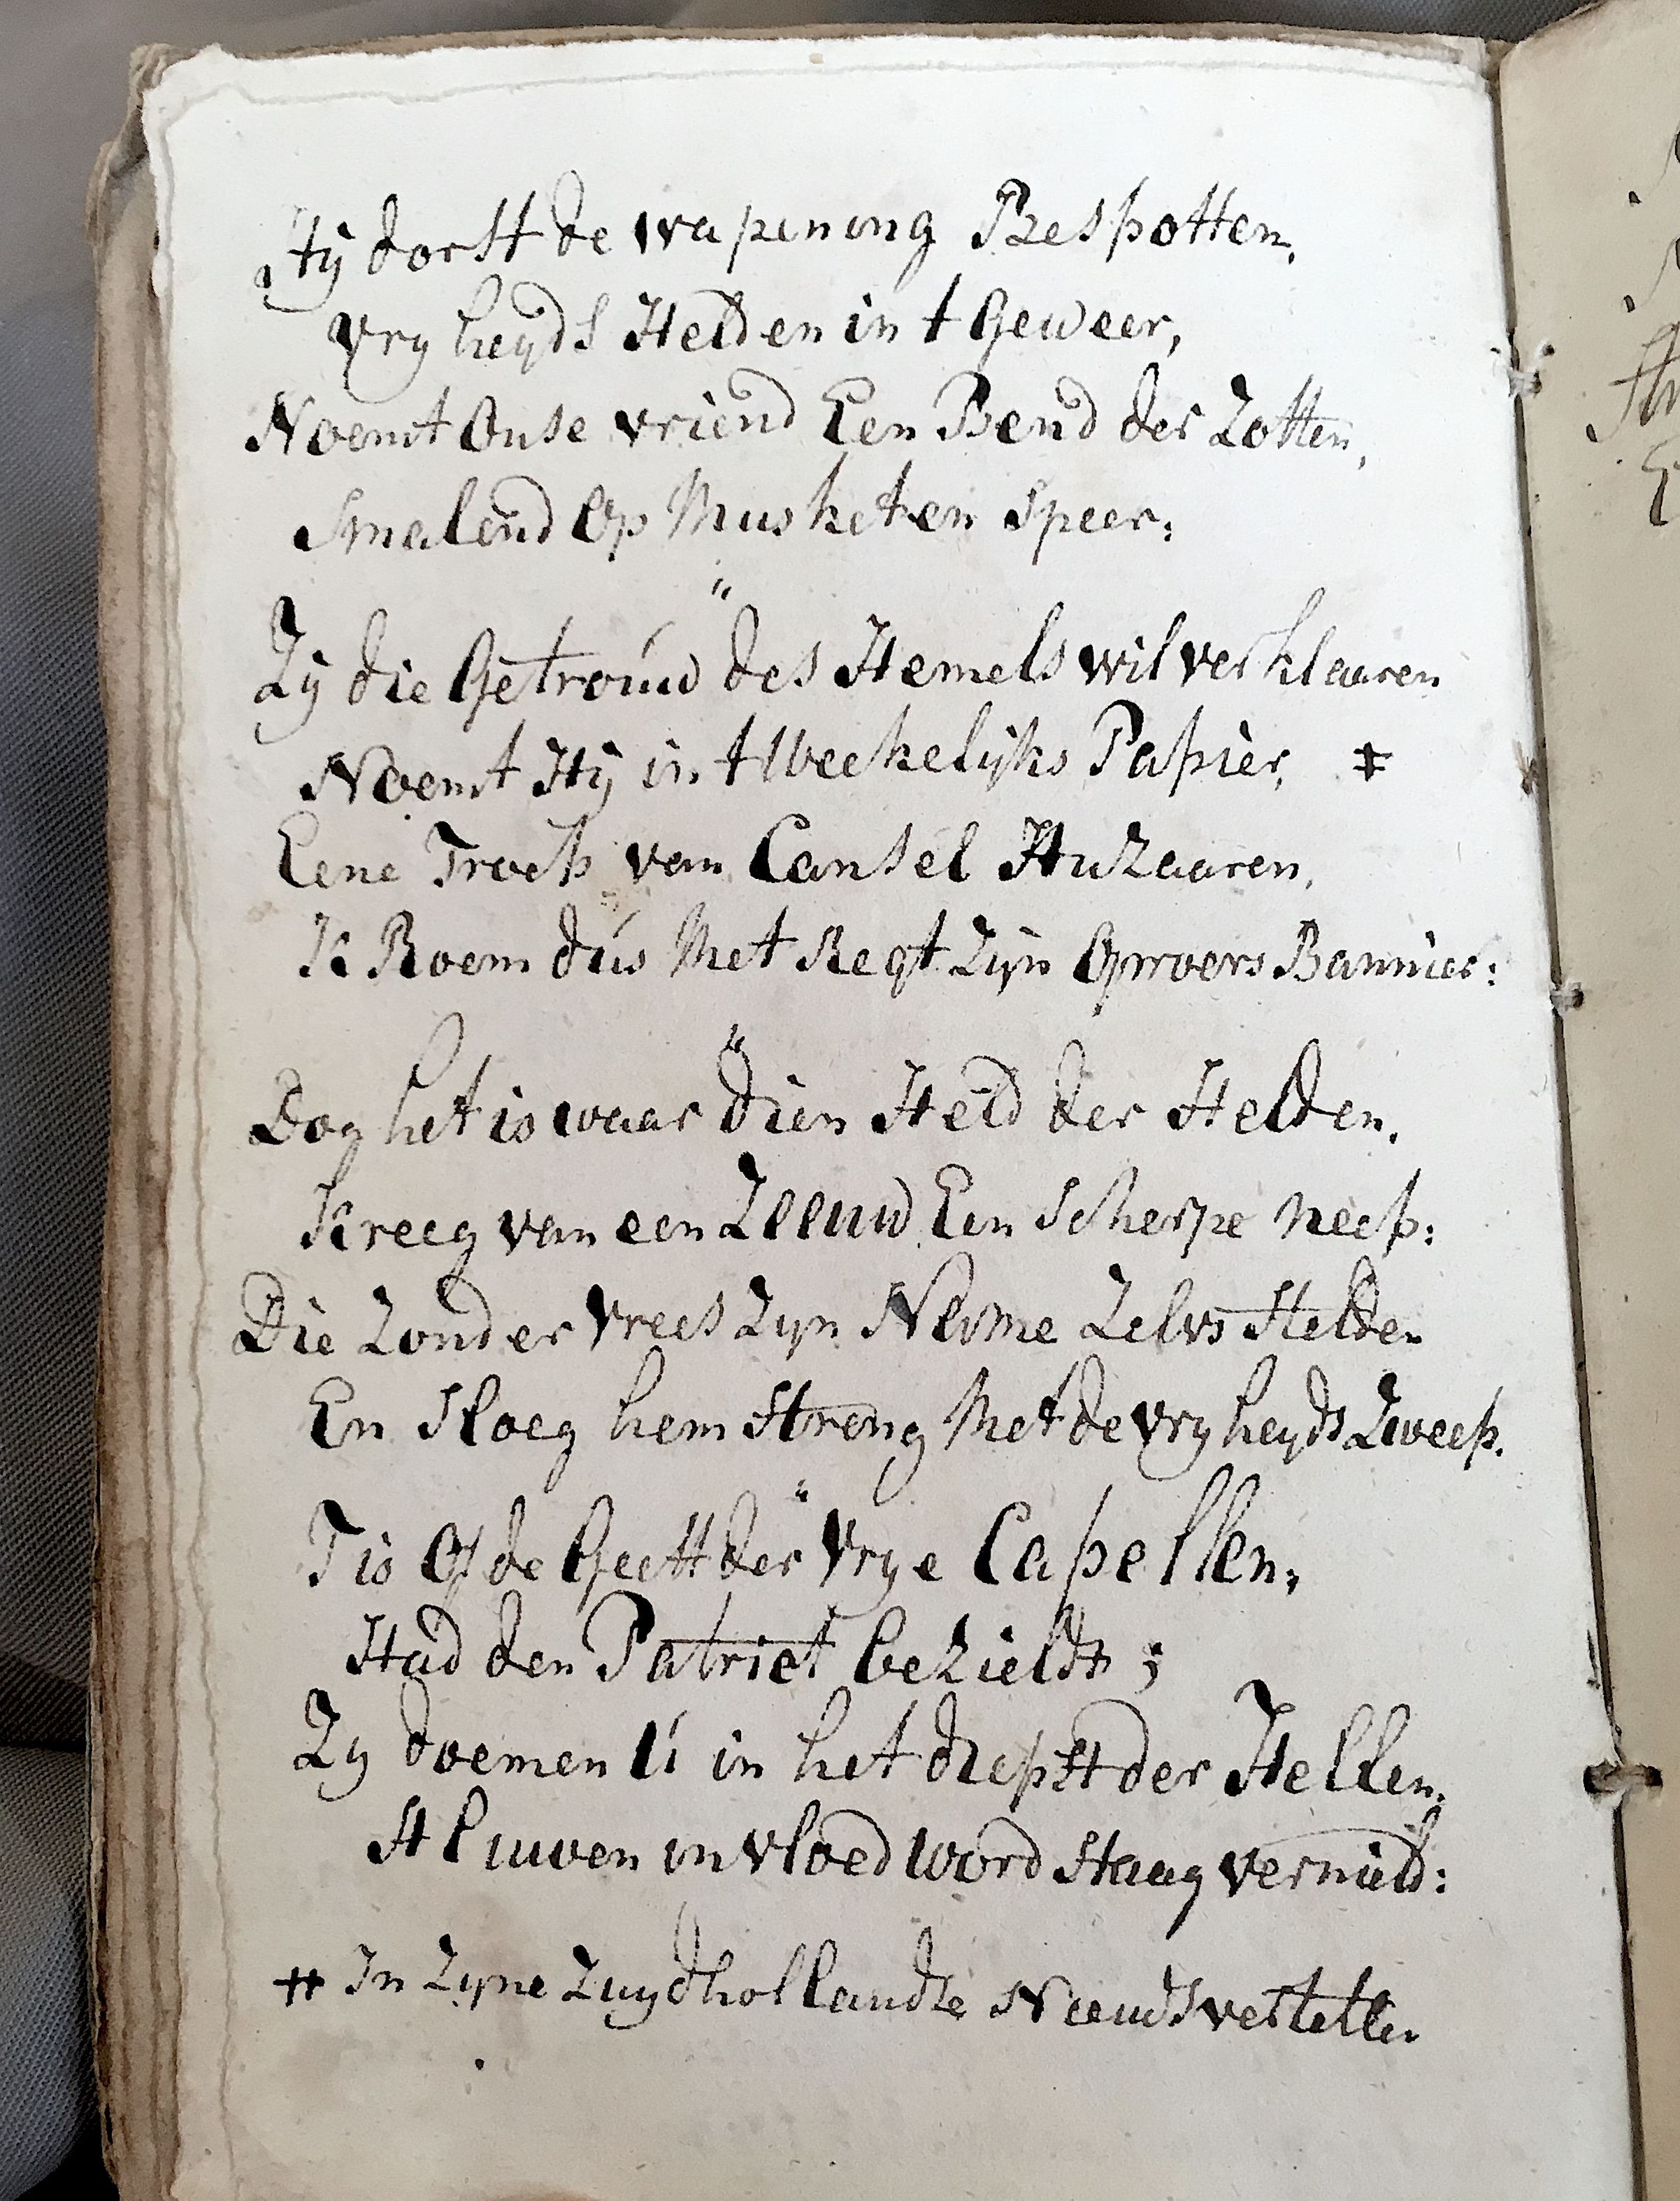 Hÿ dorst de wapening Bespotten,
Vryheyds Helden in t Geweer,
Noemt Onse vriend Een Bend der Zotten,
Smalend Op Musket en Speer;
"
Zÿ die Getrouw des Hemels wil verklaaren
Noemt Hÿ in t Weekelijks Papier, ‡
Eene Troep van Cansel Huzaaren,
K Roem dús Met Regt Zijn Oproers Bannier:
"
Dog het is waar dien Held der Helden,
Kreeg van een Zeeuw Een Scherpe neep:
Die Zonder Vrees Zyn Name Zelvs Stelden
En Sloeg hem Streng Met de vryheyds Zweep.
"
T is Of de Geest der Vrye Capellen,
Had den Patriot bezield ;
Zy doemen Ú in het diepst der Hellen,
St luwen invloed word Staag verniel'd:
‡ In Zyne Zuydhollandse Nieuwsverteller